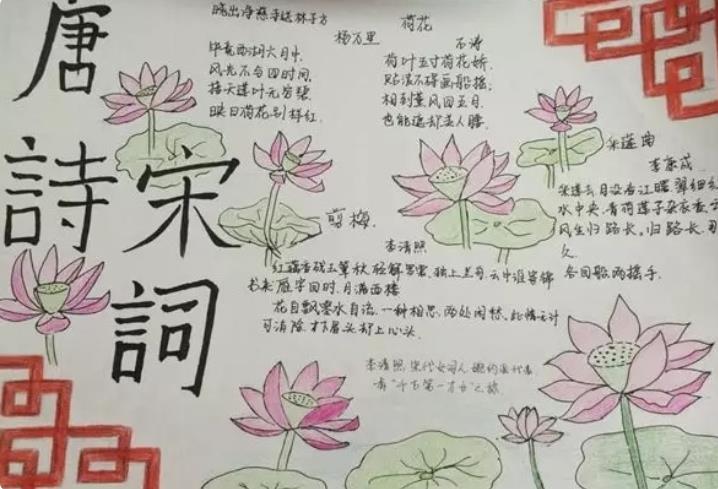 唐詩
宋詞
晓出净慈寺送林子方
杨万里
毕竟西湖六月中,
风光不与四时同.
接天莲叶无穷碧.
映日荷花别样红.
荷花
石涛
荷叶五寸荷花娇.
贴波不碍画船摇.
相到薰风四五月.
也能遮却美人腰.
采莲曲
李康成
采莲去月没春江曙翠钿红
水中央.青荷莲子杂衣香.云
风生归路长.归路长.那
久
各回船两摇手.
一剪梅
李清照
红藕香残玉簟秋.轻解罗裳.独上兰舟.云中谁寄锦
书来雁字回时.月满西楼
花自飘零水自流.一种相思.两处闲愁.此情无计
可消除.才下眉头却上心头.
李清照,宋代女词人,婉约派代表,
有"千古第一才女"之称